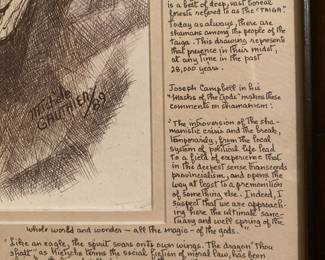 is a belt of deep, vast boreal
forests refered to as the "TAIGA".
Today as always, there are
shamans among the people of the
taiga. This drawing represents
that presence in their midst,
at any time in the past
28,000 years.
Joseph Campbell in his
"Masks of the Gods" makes these
comments on shamanism:
"The introversion of the sha-
manistic crisis and the break,
temporarily, from the local
system of political life lead
to a field of experience that
in the deepest sense transcends
provincialism, and opens the
way at least to a premonition
of something else. Indeed, I
suspect that we are approach-
ing here the ultimate sanc-
tuary and well spring of the
whole world and wonder - all the magic - of the gods."
"Like an eagle, the spirit soars onto own wings. The dragon 'thou
shalt' as Nietzche terms the social fiction of moral law, has been
89